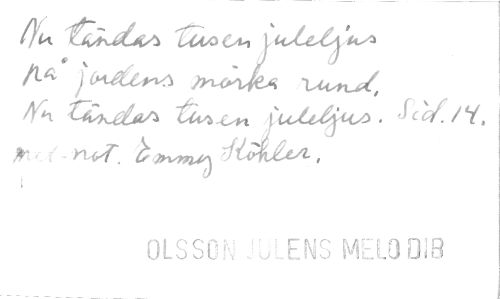 Nu tändas tusen juleljus
på jordens mörka rund.
Nu tändas tusen juleljus. Sid. 14.
med not. Emmy Köhler.
OLSSON JULENS MELODIB